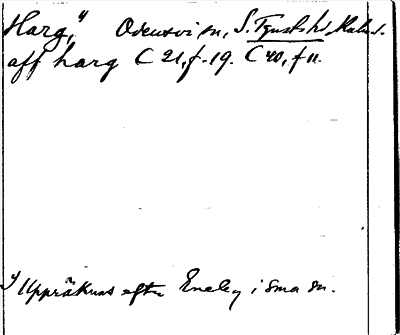 Harg,¹⁾ Odensvi sn, S. Tjusts hd, Kalm.
aff harg C 21, f. 19. C 40, f 11.
¹⁾ Uppräknas efter Eneby i sma sn.